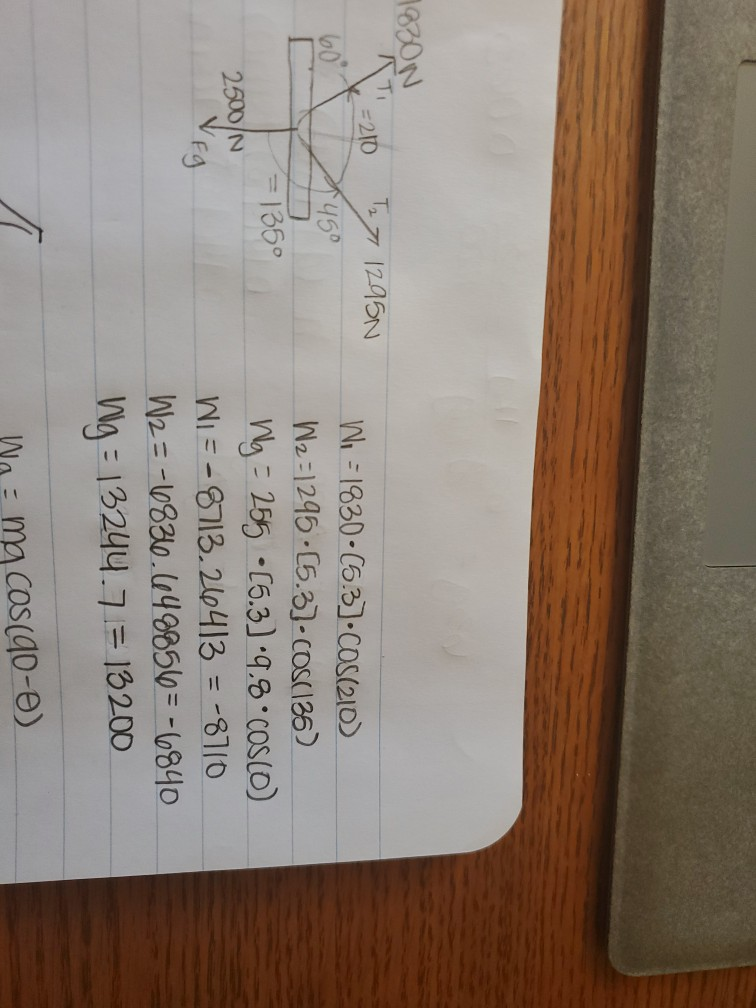 1830N
T₁
=210
60°
T₂
1295N
45°
=135°
2500N
Fg
W₁ = 1830·[5.3]·cos(210)
W₂ = 1295·[5.3]·cos(135)
Wg = 255·[5.3]·9.8·cos(0)
W₁ = -8713.26413 = -8710
W₂ = -6836.648856 = -6840
Wg = 13244.7 = 13200
Wa = mg cos(90-θ)